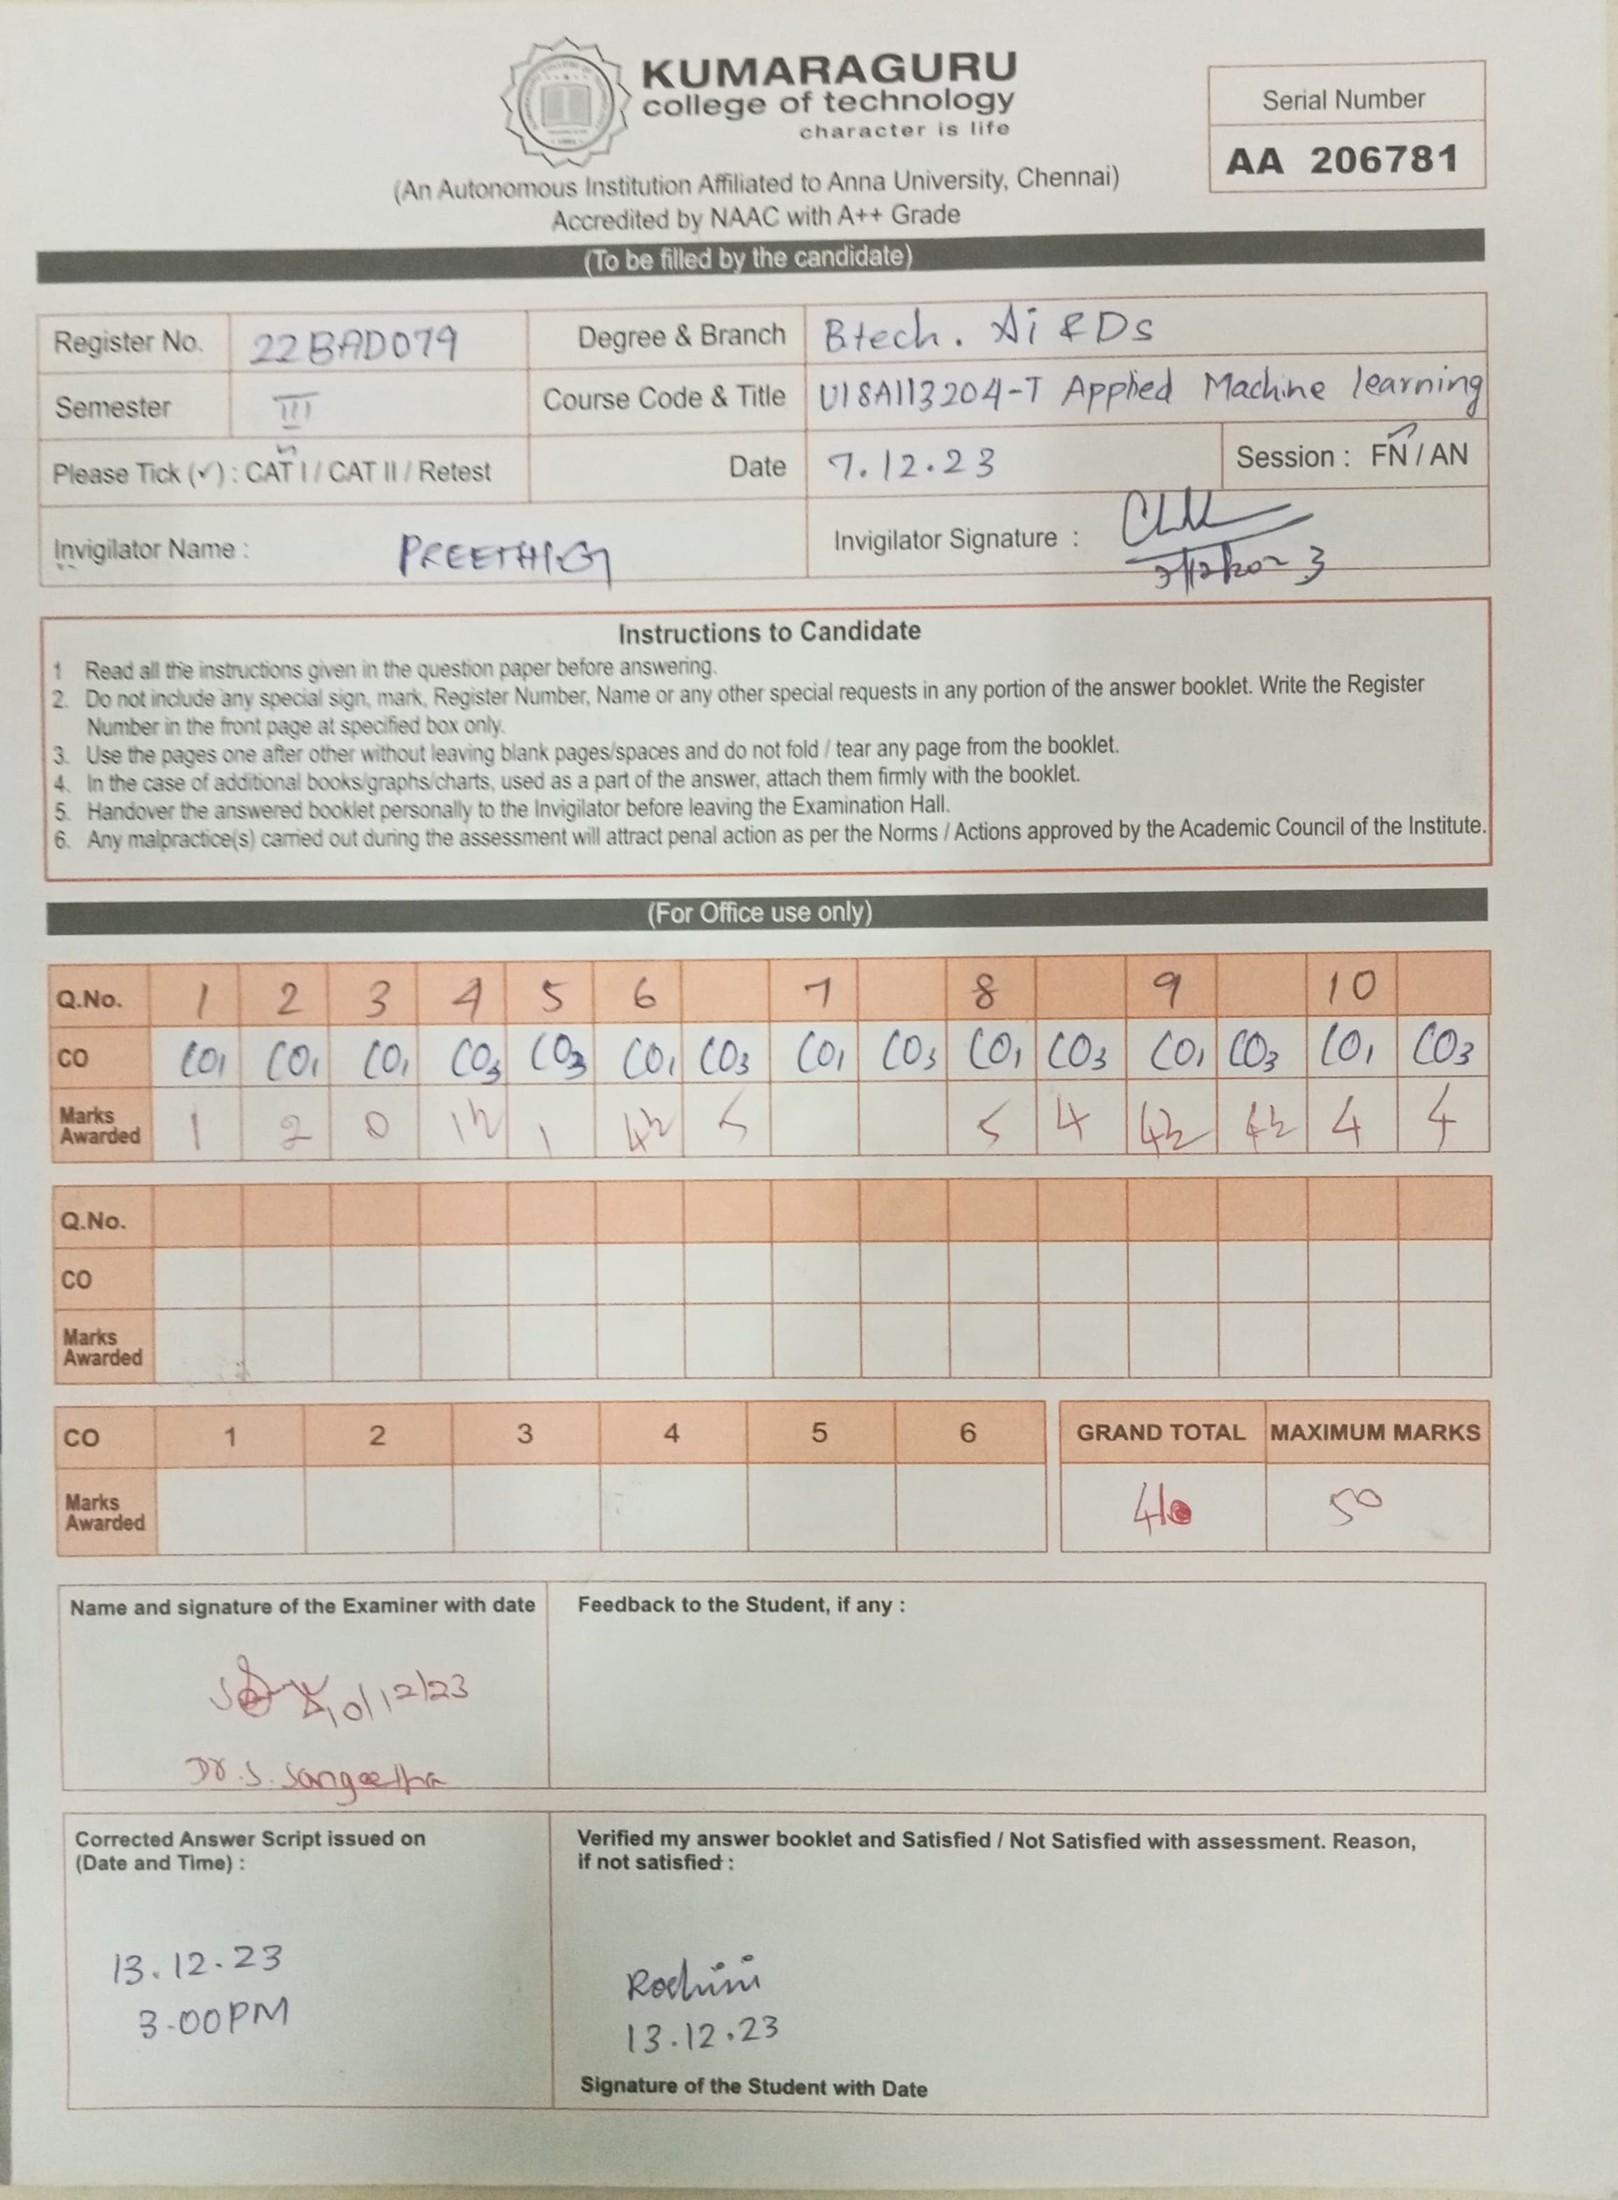 KUMARAGURU
college of technology
character is life
Serial Number
AA 206781
(An Autonomous Institution Affiliated to Anna University, Chennai)
Accredited by NAAC with A++ Grade
(To be filled by the candidate)
Register No. 22BAD079 Degree & Branch Btech. Ai & Ds
Semester III Course Code & Title U18AII3204-T Applied Machine learning
Please Tick (✓) : CAT I / CAT II / Retest Date 7.12.23 Session : FN / AN
Invigilator Name : PREETHI G Invigilator Signature :
Instructions to Candidate
1 Read all the instructions given in the question paper before answering.
2. Do not include any special sign, mark, Register Number, Name or any other special requests in any portion of the answer booklet. Write the Register
Number in the front page at specified box only.
3. Use the pages one after other without leaving blank pages/spaces and do not fold / tear any page from the booklet.
4. In the case of additional books/graphs/charts, used as a part of the answer, attach them firmly with the booklet.
5. Handover the answered booklet personally to the Invigilator before leaving the Examination Hall.
6. Any malpractice(s) carried out during the assessment will attract penal action as per the Norms / Actions approved by the Academic Council of the Institute.
(For Office use only)
Q.No. 1 2 3 4 5 6 7 8 9 10
CO CO1 CO1 CO1 CO3 CO3 CO1 CO3 CO1 CO3 CO1 CO3 CO1 CO3 CO1 CO3
Marks
Awarded 1 2 0 1½ 1 4½ 5 5 4 4½ 4½ 4 4
Q.No.
CO
Marks
Awarded
CO 1 2 3 4 5 6 GRAND TOTAL MAXIMUM MARKS
Marks
Awarded 41 50
Name and signature of the Examiner with date
Feedback to the Student, if any :
10/12/23
Dr. S. Sangeetha
Corrected Answer Script issued on
(Date and Time) :
13.12.23
3.00PM
Verified my answer booklet and Satisfied / Not Satisfied with assessment. Reason,
if not satisfied :
Roshini
13.12.23
Signature of the Student with Date